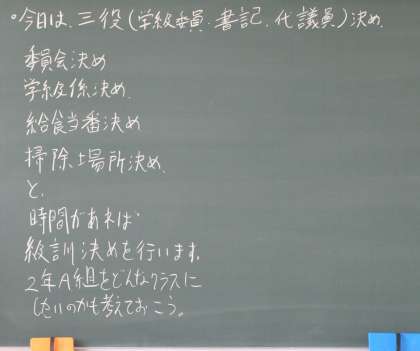 。今日は、三役(学級委員.書記.代議員)決め.
委員会決め
学級係決め.
給食当番決め
掃除場所決め.
と、
時間があれば
級訓決めを行います。
2年A組をどんなクラスに
したいのかも考えておこう。